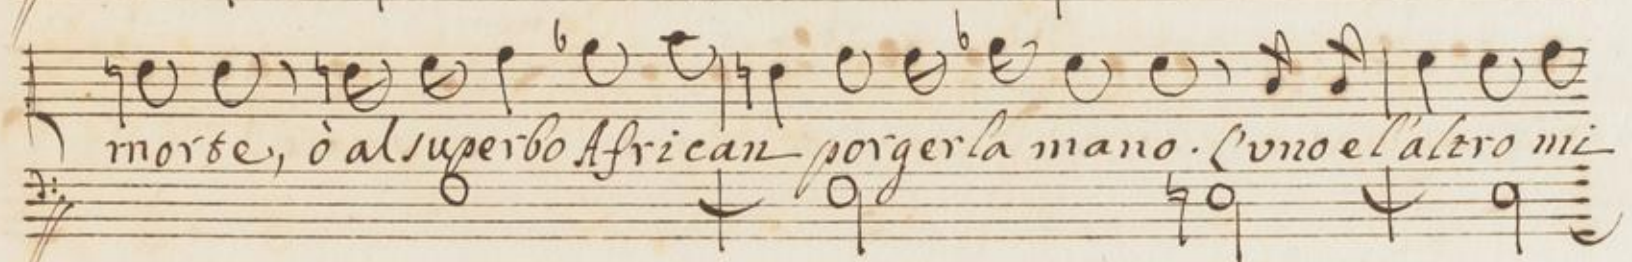 morte, ò al superbo African porger la mano. L'uno e l'altro mi